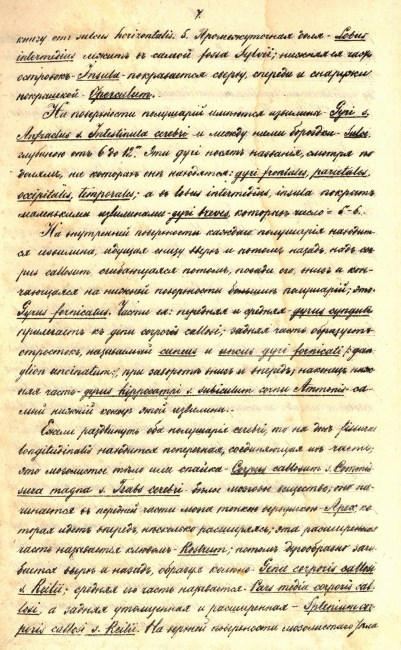 7.
книзу отъ sulcus horizontalis. 5. Промежуточная доля - Lobus
intermedius лежитъ въ самой fossa Sylvii; нижняя ея часть
островокъ - Insula - покрывается сверху, спереди и снаружи
покрышкой - Operculum.
На поверхности полушарій имѣются извилины - Gyri s.
Anfractus s. Intestinula cerebri и между ними борозды - Sulci
глубиною отъ 6 до 12'''. Эти дуги носятъ названія, смотря по
долямъ, на которыхъ онѣ находятся: gyri frontales, parietales,
occipitales, temporales; а въ lobus intermedius, insula покрытъ
маленькими извилинами - gyri breves которыхъ число = 5-6.
На внутренней поверхности каждаго полушарія находит-
ся извилина, идущая снизу вверхъ и потомъ назадъ надъ cor-
pus callosum огибающаяся потомъ, позади его, внизъ и кон-
чающаяся на нижней поверхности большихъ полушарій; это
Gyrus fornicatus. Части ея: передняя и средняя - gyrus cynguli
прилегаетъ къ corporis callosi; задняя часть образуетъ
отростокъ, называемый cuneus и uncus gyri fornicati (gan-
glion uncinatum); при заворотѣ внизъ и впередъ; наконецъ ниж-
няя часть - gyrus hippocampi s. subiculum cornu Ammonis - са-
мый нижній конецъ этой извилины.
Ежели раздвинуть оба полушарія cerebri, то на днѣ fissurae
longitudinalis находится поперечная, соединяющая ихъ часть;
это мозолистое тѣло или спайка - Corpus callosum s. Commis-
sura magna s. Trabs cerebri - бѣлое мозговое вещество; оно на-
чинается въ передней части тонкимъ верхушкою - Apex; ко-
торая идетъ впередъ, нѣсколько расширяясь; эта расширенная
часть называется клювомъ - Rostrum; потомъ дугообразно заги-
бается вверхъ и назадъ, образуя колѣно - Genu corporis callosi
s. Reilii; средняя его часть называется - Pars media corporis cal-
losi, а задняя утолщенная и расширенная - Splenium cor-
poris callosi s. Reilii. На верхней поверхности мозолистаго тѣла